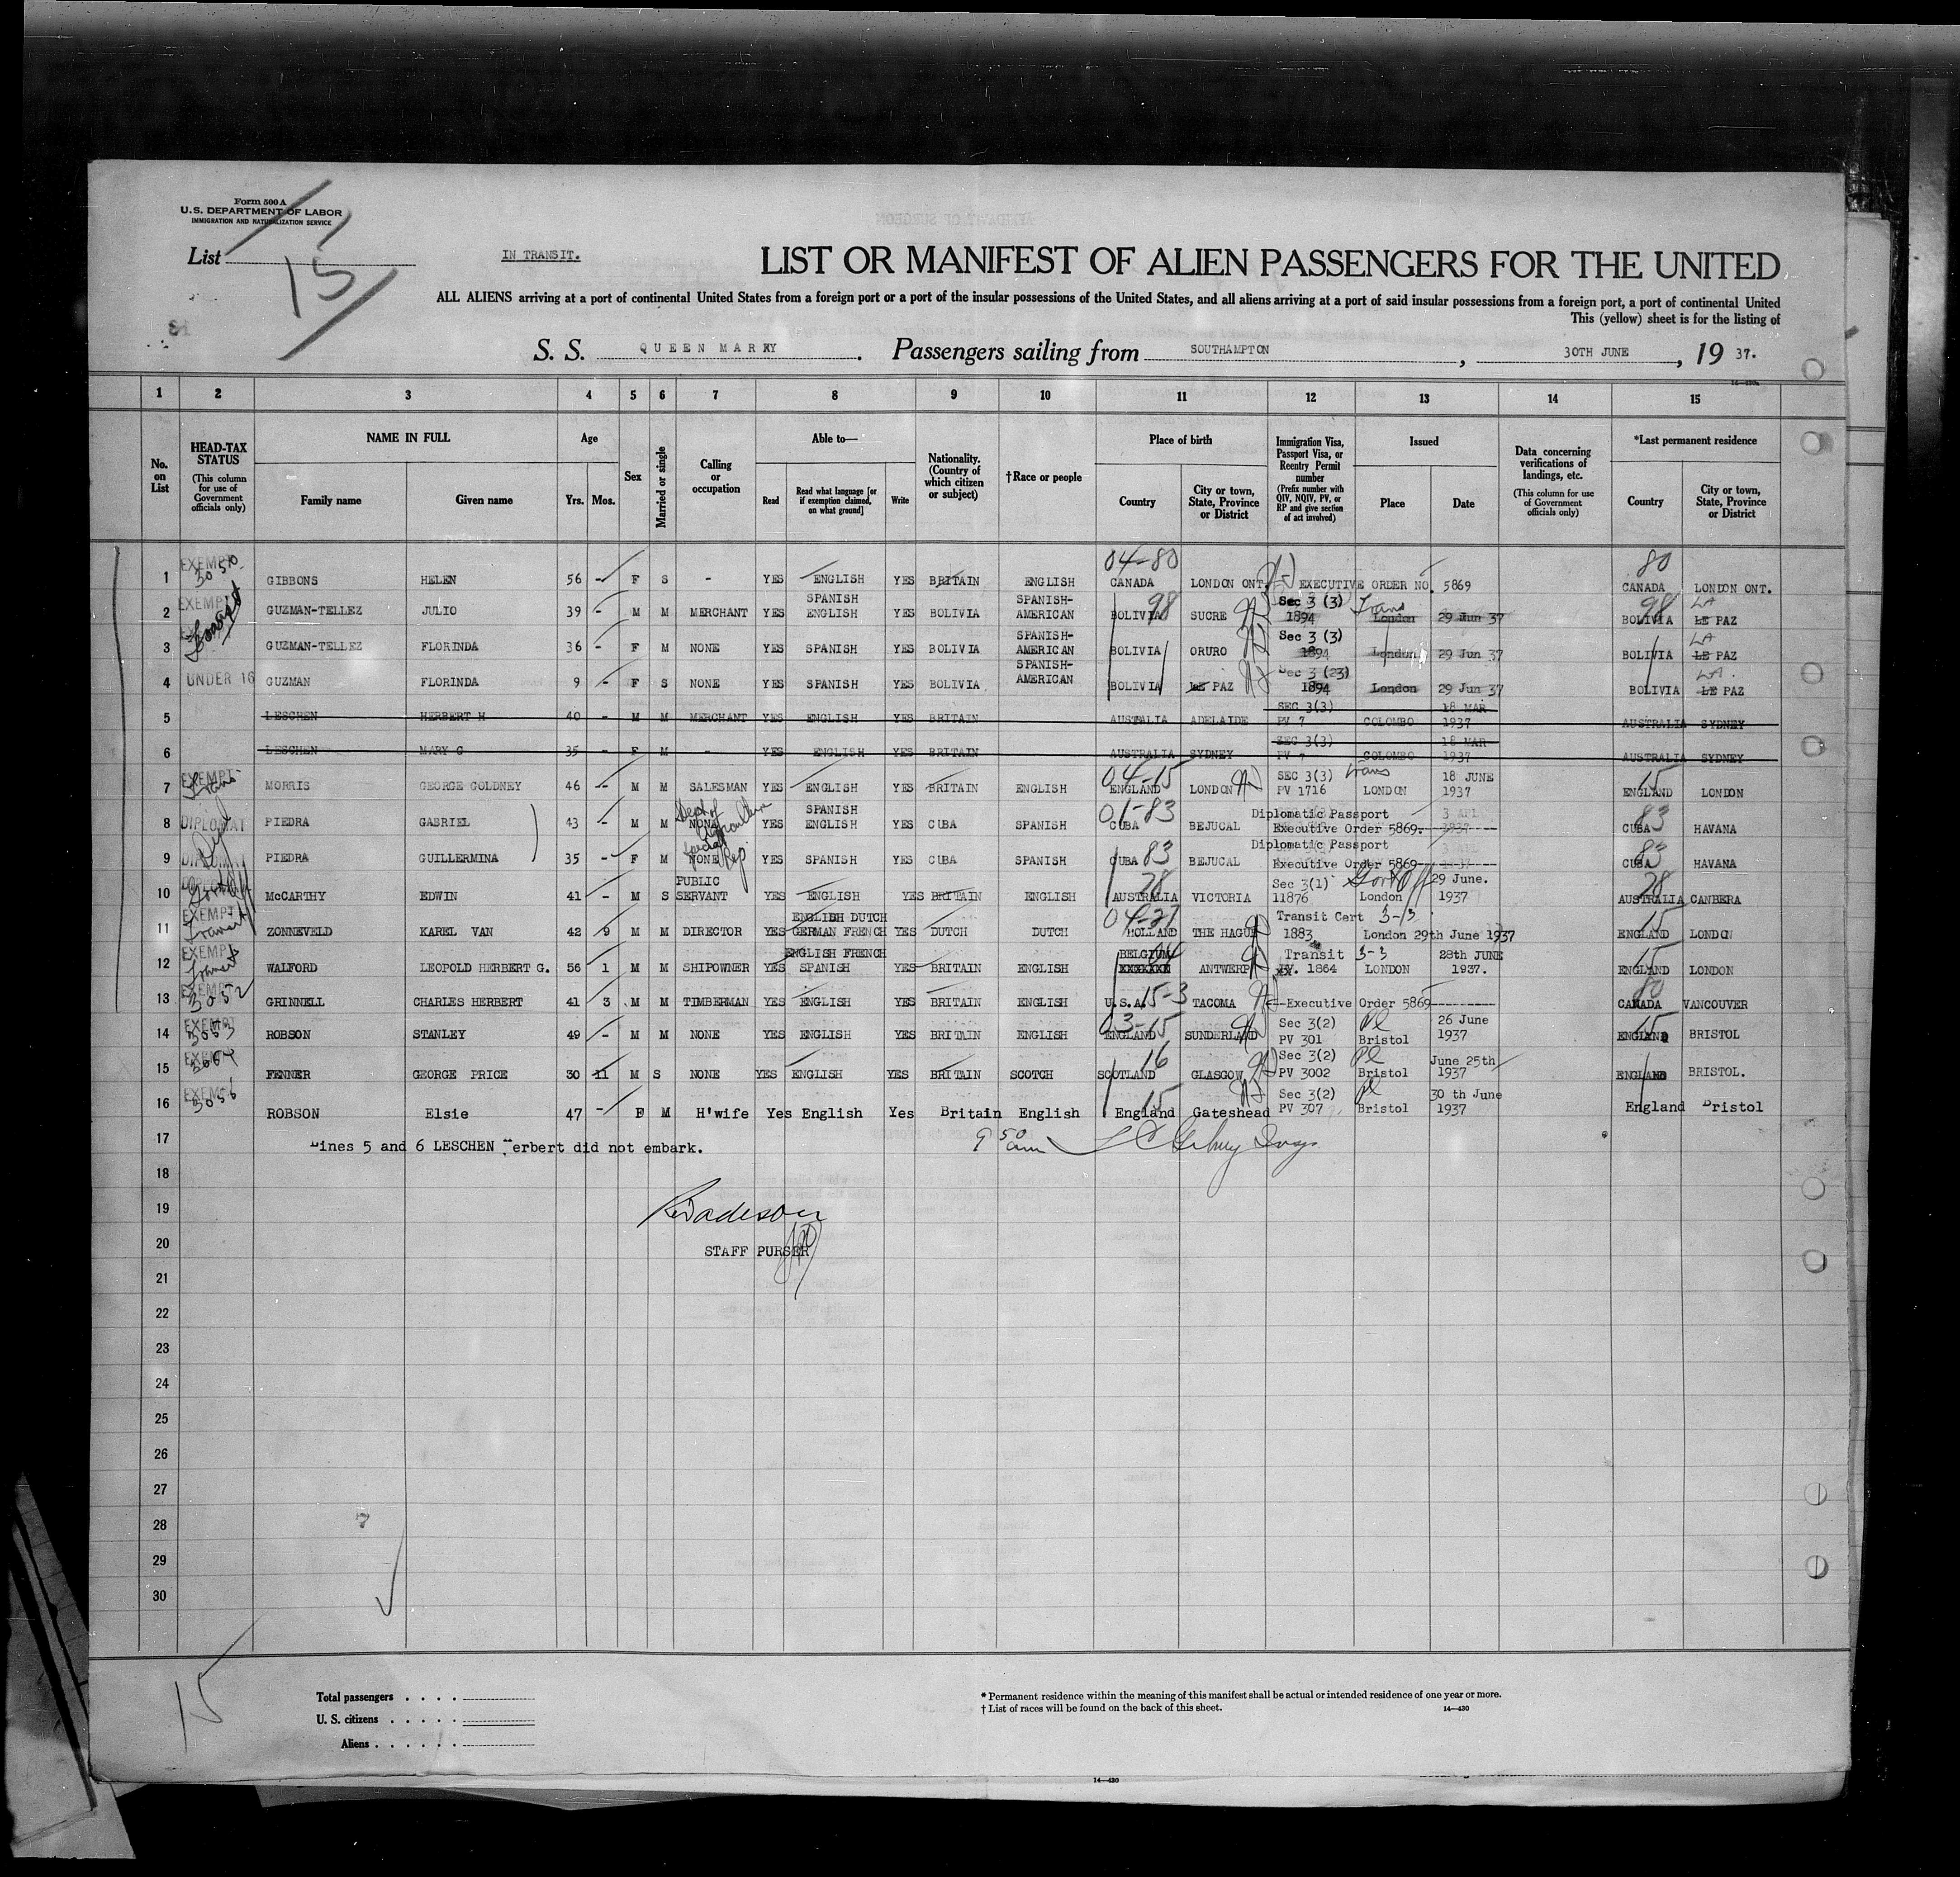 Form 500 A
U.S. DEPARTMENT OF LABOR
IMMIGRATION AND NATURALIZATION SERVICE
List
15
IN TRANSIT.
LIST OR MANIFEST OF ALIEN PASSENGERS FOR THE UNITED
ALL ALIENS arriving at a port of continental United States from a foreign port or a port of the insular possessions of the United States, and all aliens arriving at a port of said insular possessions from a foreign port, a port of continental United
This (yellow) sheet is for the listing of
S. S. QUEEN MARY. Passengers sailing from SOUTHAMPTON, 30TH JUNE, 19 37.
1 2 3 4 5 6 7 8 9 10 11 12 13 14 15
No. on List
HEAD-TAX STATUS (This column for use of Government officials only)
NAME IN FULL Family name Given name
Age Yrs. Mos.
Sex
Married or single
Calling or occupation
Able to— Read Read what language [or if exemption claimed, on what ground] Write
Nationality. (Country of which citizen or subject)
†Race or people
Place of birth Country City or town, State, Province or District
Immigration Visa, Passport Visa, or Reentry Permit number (Prefix number with QIV, NQIV, PV, or RP and give section of act involved)
Issued Place Date
Data concerning verifications of landings, etc. (This column for use of Government officials only)
*Last permanent residence Country City or town, State, Province or District
1 EXEMPT 3050 GIBBONS HELEN 56 - F S - YES ENGLISH YES BRITAIN ENGLISH 04-80 CANADA LONDON ONT. EXECUTIVE ORDER NO. 5869 80 CANADA LONDON ONT.
2 EXEMPT GUZMAN-TELLEZ JULIO 39 - M M MERCHANT YES SPANISH ENGLISH YES BOLIVIA SPANISH-AMERICAN 98 BOLIVIA SUCRE Sec 3 (3) 1894 Trans London 29 Jun 37 98 BOLIVIA LA LE PAZ
3 GUZMAN-TELLEZ FLORINDA 36 - F M NONE YES SPANISH YES BOLIVIA SPANISH-AMERICAN BOLIVIA ORURO Sec 3 (3) 1894 London 29 Jun 37 BOLIVIA LA LE PAZ
4 UNDER 16 GUZMAN FLORINDA 9 - F S NONE YES SPANISH YES BOLIVIA SPANISH-AMERICAN BOLIVIA LE PAZ Sec 3 (23) 1894 London 29 Jun 37 BOLIVIA LA LE PAZ
5 LESCHEN HERBERT H 40 - M M MERCHANT YES ENGLISH YES BRITAIN AUSTRALIA ADELAIDE SEC 3(3) PV 7 COLOMBO 18 MAR 1937 AUSTRALIA SYDNEY
6 LESCHEN MARY G 35 - F M - YES ENGLISH YES BRITAIN AUSTRALIA SYDNEY SEC 3(3) PV 7 COLOMBO 18 MAR 1937 AUSTRALIA SYDNEY
7 EXEMPT Trans MORRIS GEORGE COLDNEY 46 - M M SALESMAN YES ENGLISH YES BRITAIN ENGLISH 04-15 ENGLAND LONDON SEC 3(3) PV 1716 trans LONDON 18 JUNE 1937 15 ENGLAND LONDON
8 DIPLOMAT PIEDRA GABRIEL 43 - M M NONE Dept of Agriculture YES SPANISH ENGLISH YES CUBA SPANISH 01-83 CUBA BEJUCAL Diplomatic Passport Executive Order 5869. 3 APL 1937 83 CUBA HAVANA
9 DIPLOMAT PIEDRA GUILLERMINA 35 - F M NONE YES SPANISH YES CUBA SPANISH 83 CUBA BEJUCAL Diplomatic Passport Executive Order 5869 83 CUBA HAVANA
10 McCARTHY EDWIN 41 - M S PUBLIC SERVANT YES ENGLISH YES BRITAIN ENGLISH 28 AUSTRALIA VICTORIA Sec 3(1) 11876 London 29 June. 1937 28 AUSTRALIA CANBERA
11 EXEMPT Transit ZONNEVELD KAREL VAN 42 9 M M DIRECTOR YES ENGLISH DUTCH GERMAN FRENCH YES DUTCH DUTCH 04-21 HOLLAND THE HAGUE Transit Cert 3-3 1883 London 29th June 1937 15 ENGLAND LONDON
12 EXEMPT Transit WALFORD LEOPOLD HERBERT G. 56 1 M M SHIPOWNER YES ENGLISH FRENCH SPANISH YES BRITAIN ENGLISH BELGIUM 04 XXXXXXX ANTWERP Transit 3-3 PV. 1864 LONDON 28th JUNE 1937. 15 ENGLAND LONDON
13 EXEMPT 3052 GRINNELL CHARLES HERBERT 41 3 M M TIMBERMAN YES ENGLISH YES BRITAIN ENGLISH U.S.A. 15-3 TACOMA Executive Order 5869 80 CANADA VANCOUVER
14 EXEMPT 3053 ROBSON STANLEY 49 - M M NONE YES ENGLISH YES BRITAIN ENGLISH 03-15 ENGLAND SUNDERLAND Sec 3(2) PV 301 Pl Bristol 26 June 1937 15 ENGLAND BRISTOL
15 EXEMPT 3054 FENNER GEORGE PRICE 30 11 M S NONE YES ENGLISH YES BRITAIN SCOTCH 16 SCOTLAND GLASGOW Sec 3(2) PV 3002 Pl Bristol June 25th 1937 ENGLAND BRISTOL.
16 EXEMPT 3056 ROBSON Elsie 47 - F M H'wife Yes English Yes Britain English 15 England Gateshead Sec 3(2) PV 307 Pl Bristol 30 th June 1937 England Bristol
17 Lines 5 and 6 LESCHEN Herbert did not embark. 9 50 am
18
19
20 STAFF PURSER
21
22
23
24
25
26
27
28
29
30
15
Total passengers
U. S. citizens
Aliens
* Permanent residence within the meaning of this manifest shall be actual or intended residence of one year or more.
† List of races will be found on the back of this sheet.
14—430
14—430